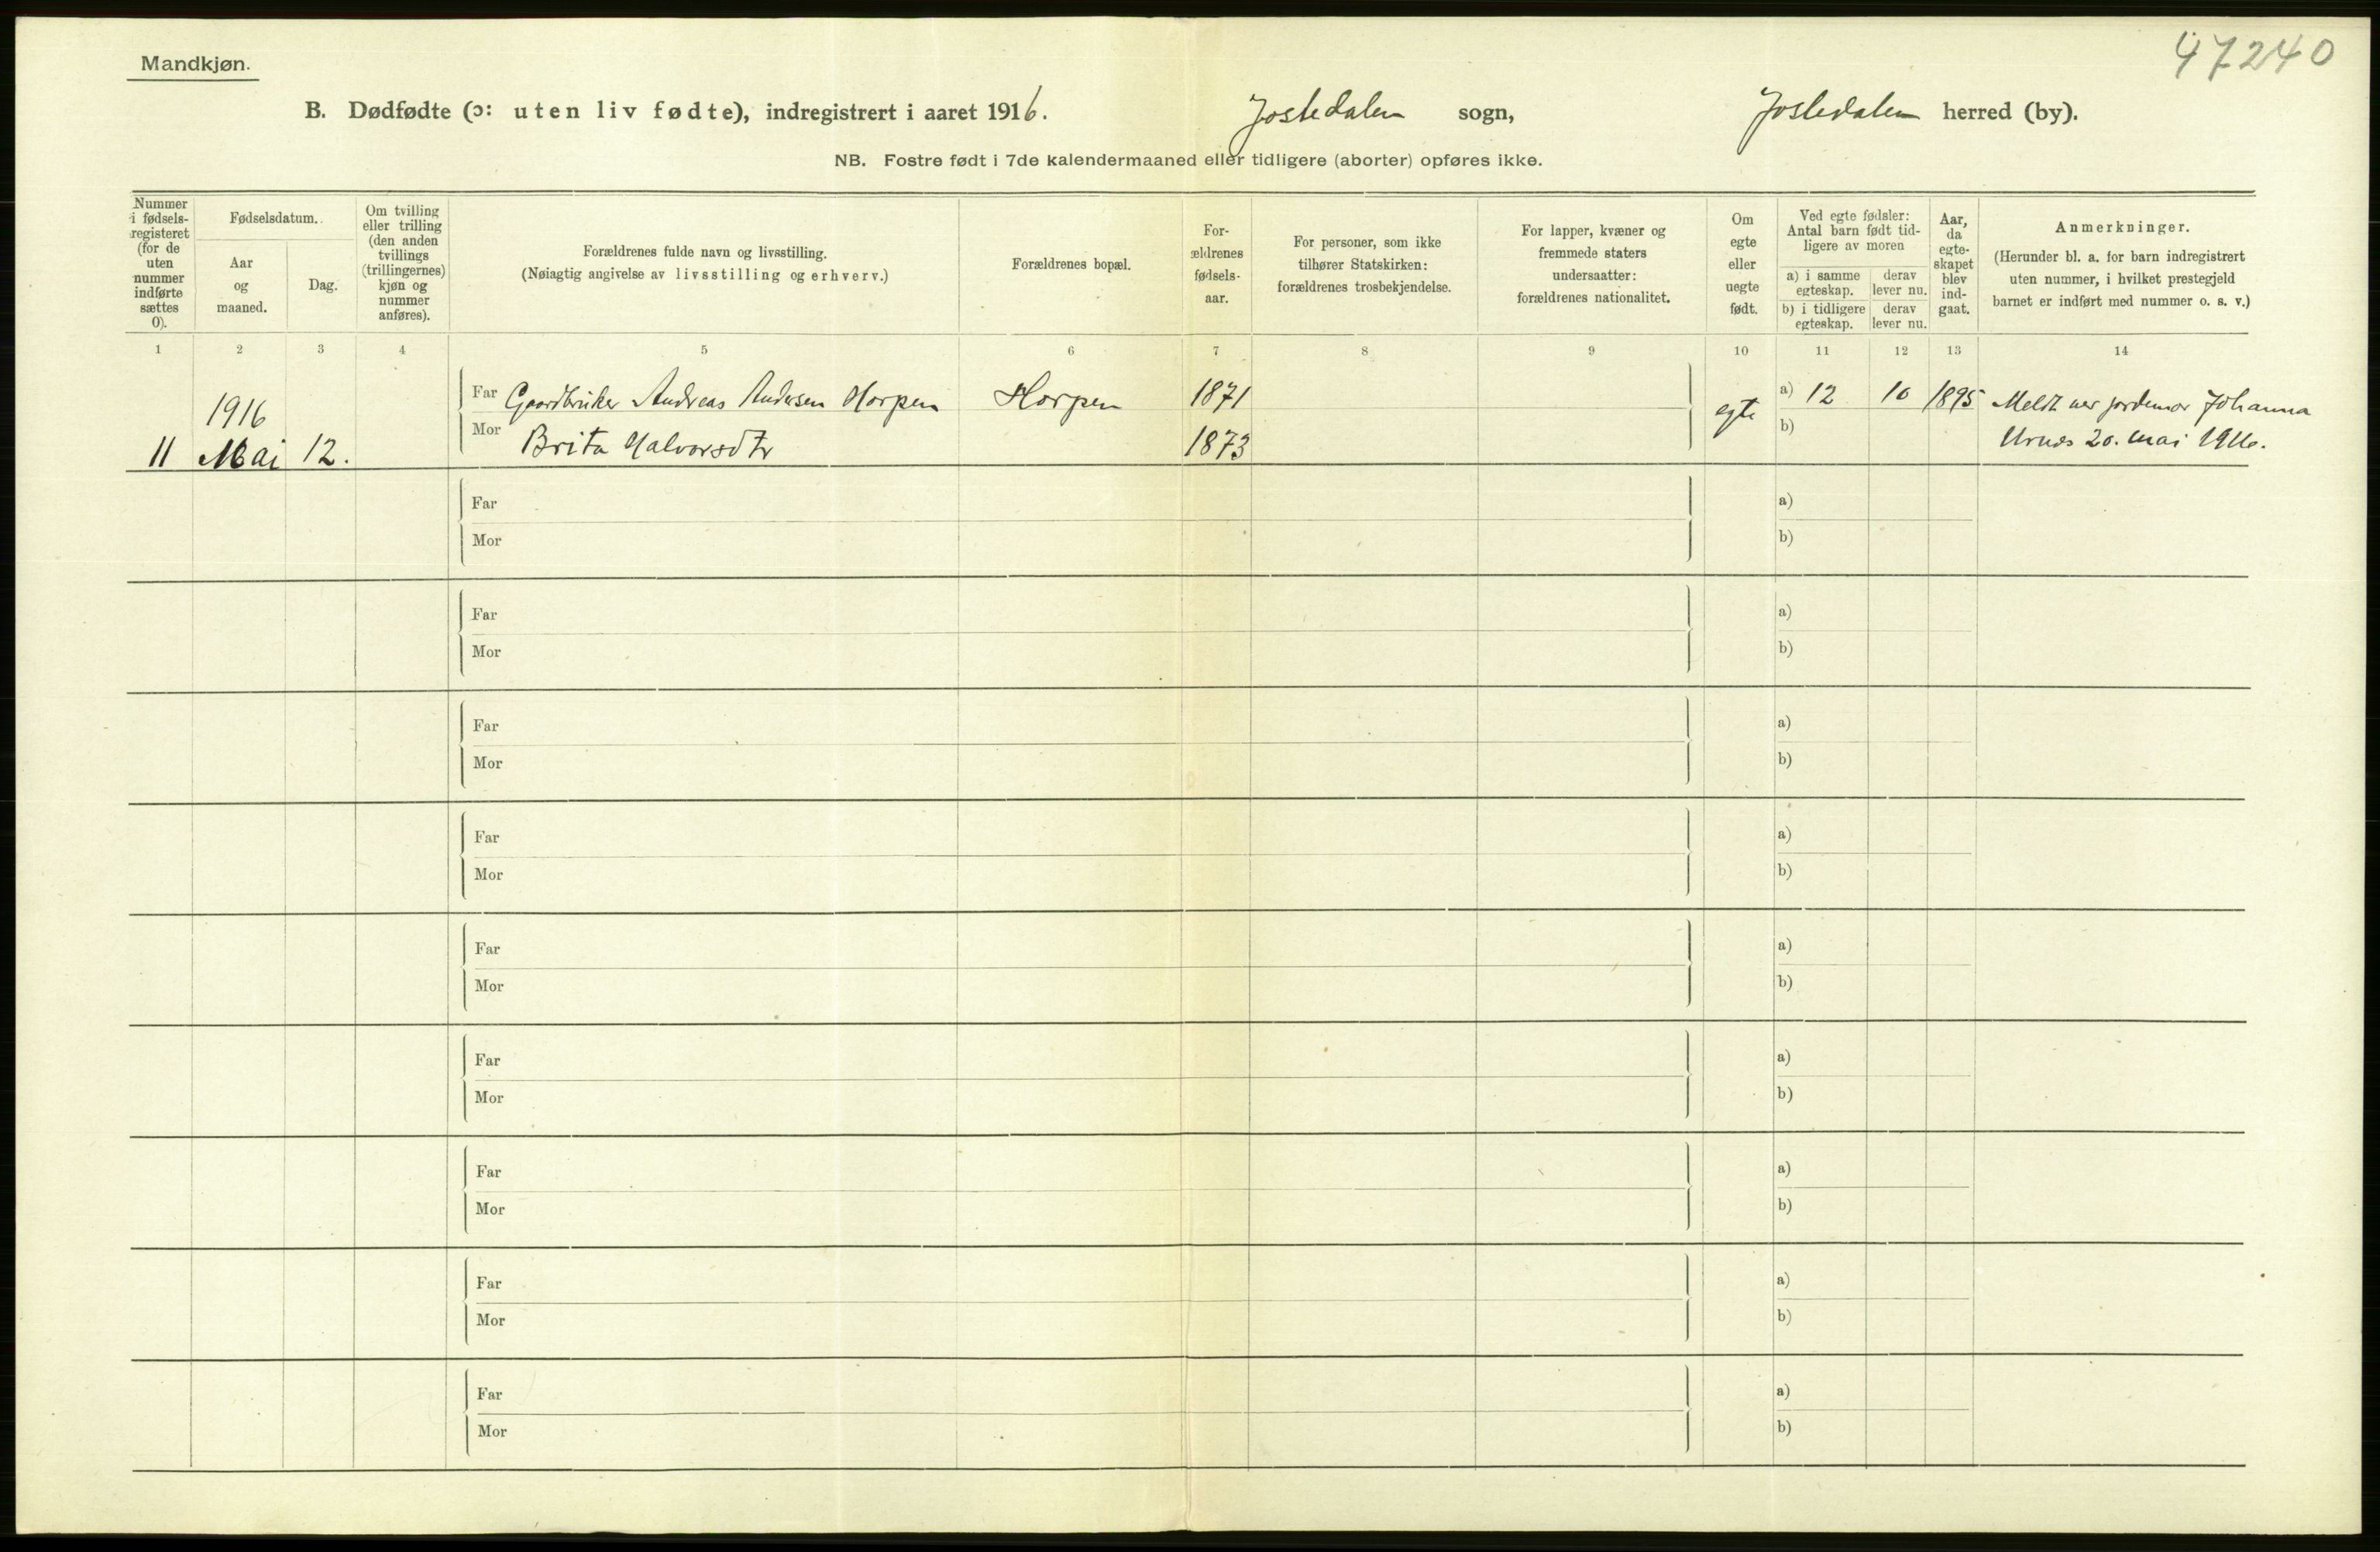 47240
Mandkjøn.
B. Dødfødte (ɔ: uten liv fødte), indregistrert i aaret 1916. Jostedalen sogn, Jostedalen herred (by).
NB. Fostre født i 7de kalendermaaned eller tidligere (aborter) opføres ikke.
Nummer
i fødsels-
registeret
(for de
uten
nummer
indførte
sættes
0).
Fødselsdatum.
Aar
og
maaned.
Dag.
Om tvilling
eller trilling
(den anden
tvillings
(trillingernes)
kjøn og
nummer
anføres).
Forældrenes fulde navn og livsstilling.
(Nøiagtig angivelse av livsstilling og erhverv.)
Forældrenes bopæl.
For-
ældrenes
fødsels-
aar.
For personer, som ikke
tilhører Statskirken:
forældrenes trosbekjendelse.
For lapper, kvæner og
fremmede staters
undersaatter:
forældrenes nationalitet.
Om
egte
eller
uegte
født.
Ved egte fødsler:
Antal barn født tid-
ligere av moren
a) i samme
egteskap.
derav
lever nu.
b) i tidligere
egteskap.
derav
lever nu.
Aar,
da
egte-
skapet
blev
ind-
gaat.
Anmerkninger.
(Herunder bl. a. for barn indregistrert
uten nummer, i hvilket prestegjeld
barnet er indført med nummer o. s. v.)
1 2 3 4 5 6 7 8 9 10 11 12 13 14
Far Gaardbruker Andreas Andersen Horpen Horpen 1871 a) 12 10 1895 Meldt jordemor Johanna
1916 egte
Mor Brita Halvorsdtr 1873 b) Urnes 20. mai 1916.
11 Mai 12.
Far a)
Mor b)
Far a)
Mor b)
Far a)
Mor b)
Far a)
Mor b)
Far a)
Mor b)
Far a)
Mor b)
Far a)
Mor b)
Far a)
Mor b)
Far a)
Mor b)